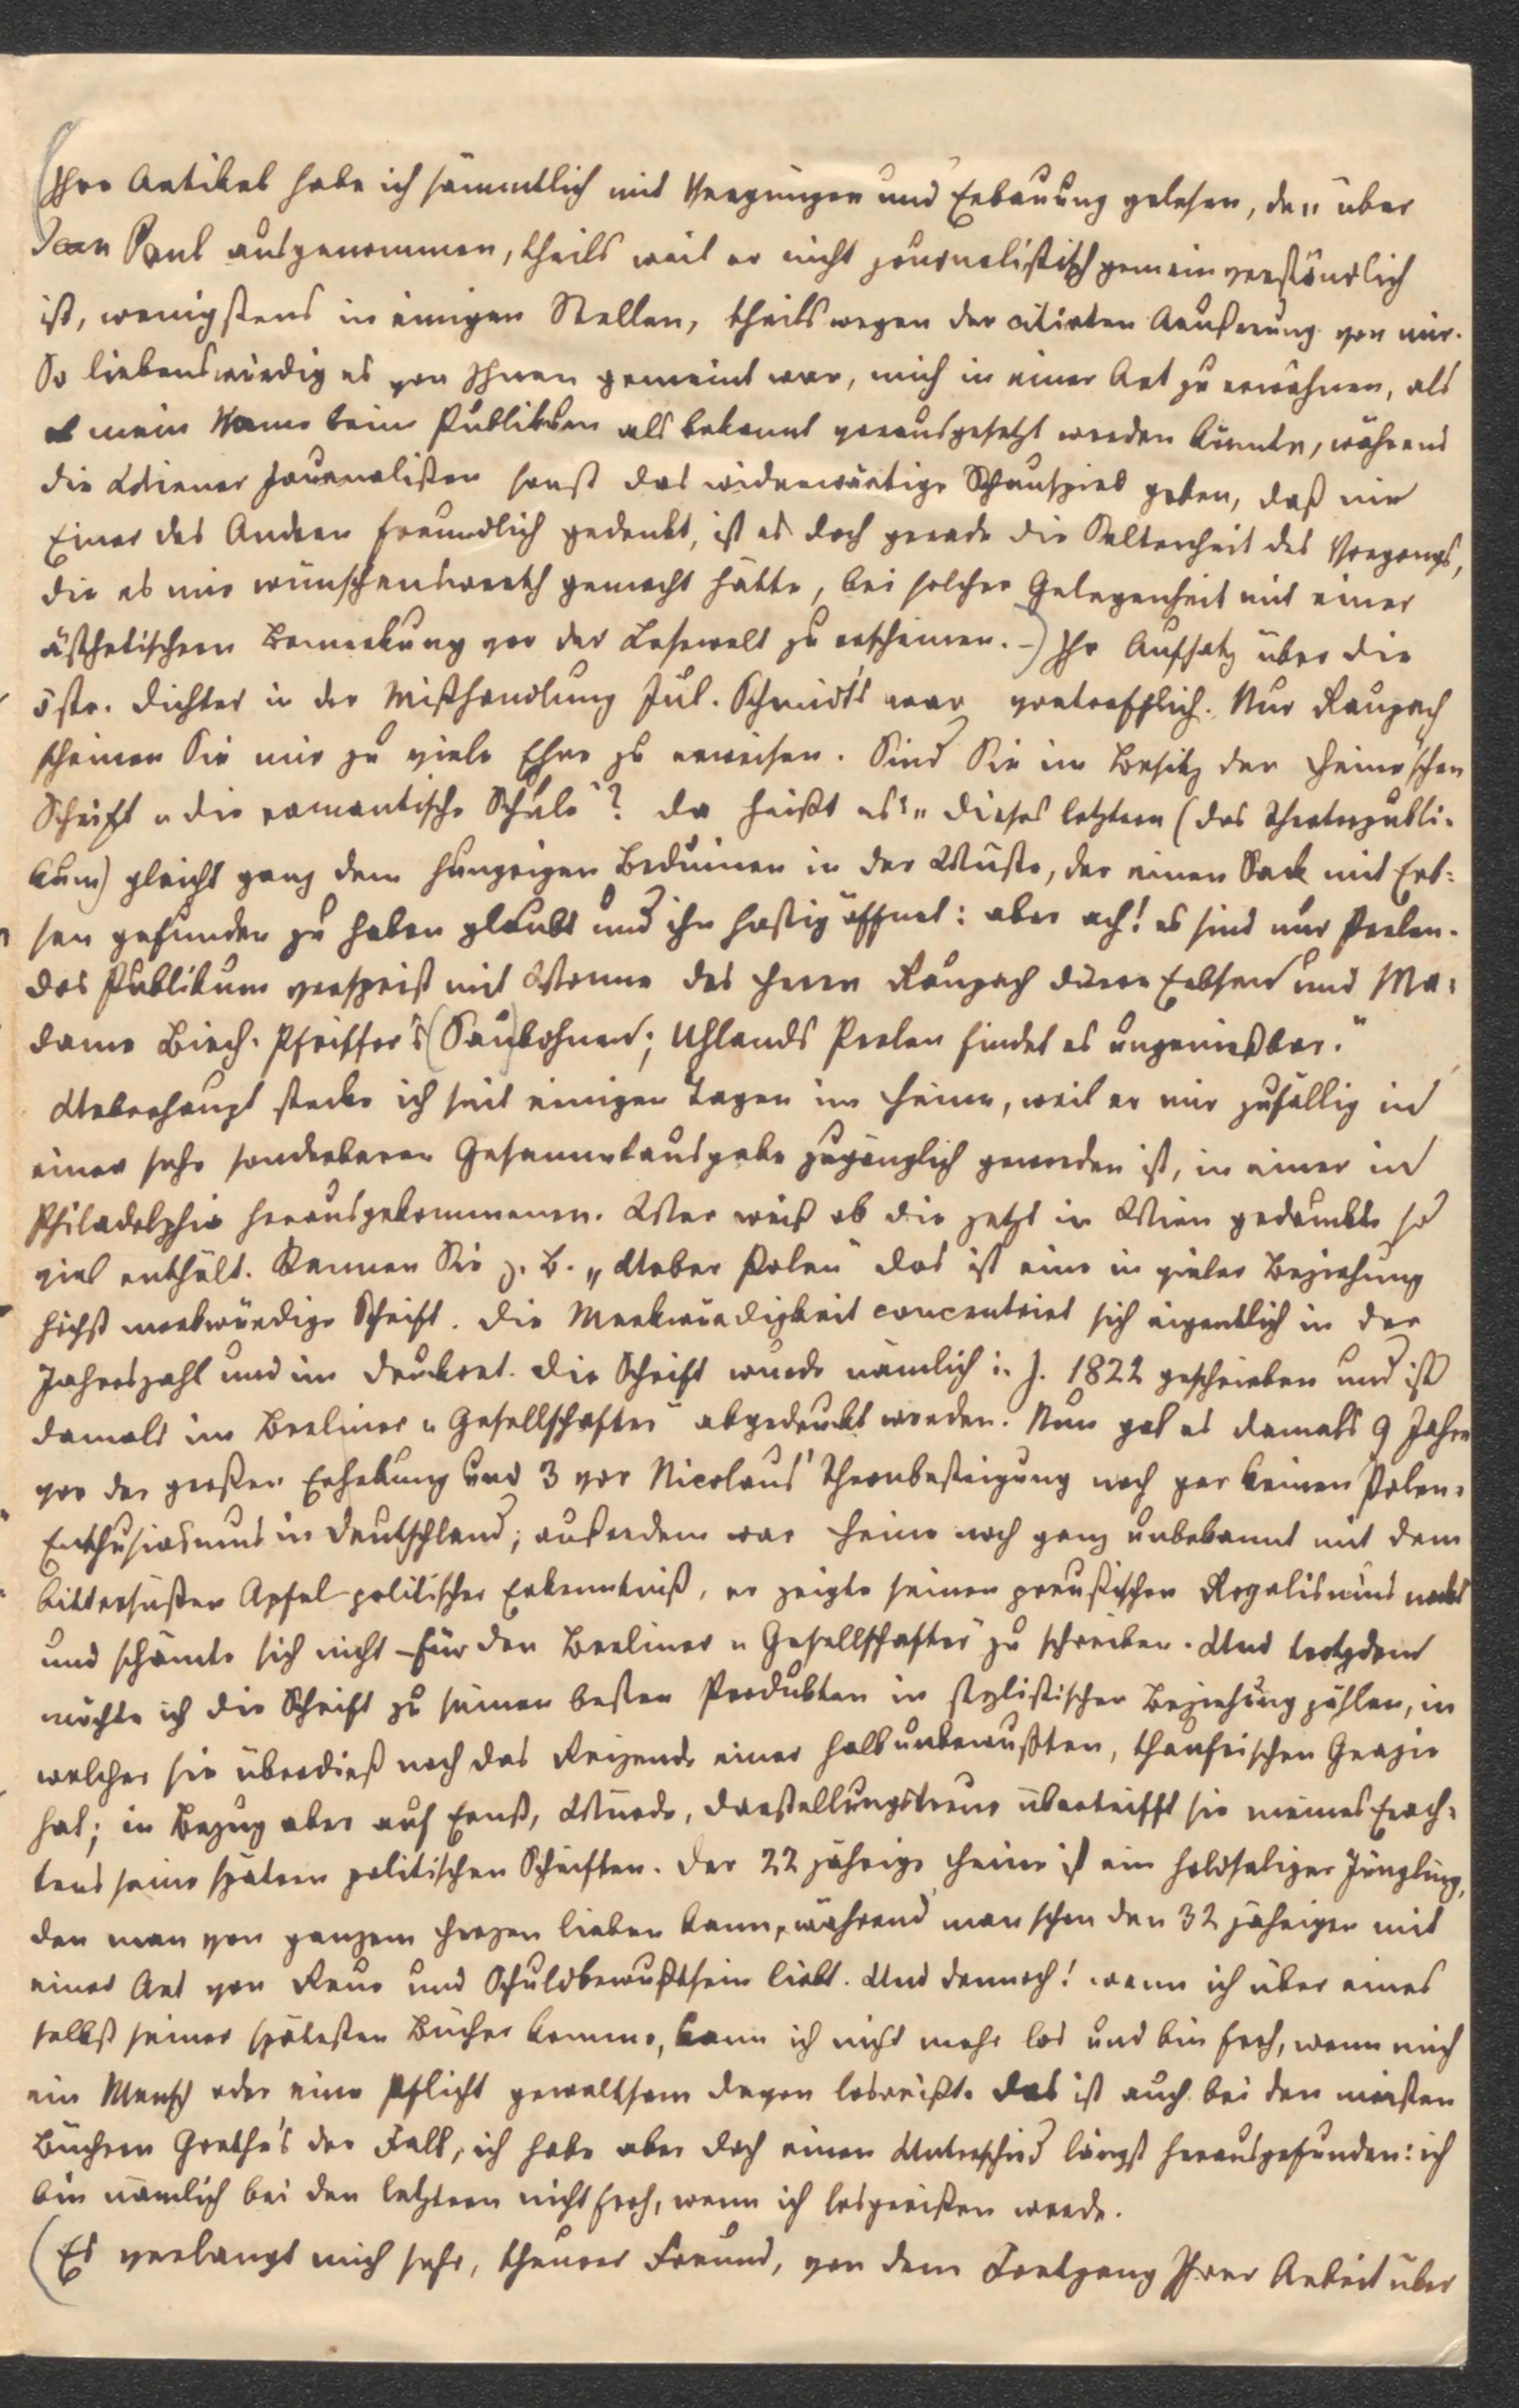 (Ihre Artikel habe ich sämmtlich mit Vergnügen und Erbauung gelesen, den über
Jean Paul ausgenommen, theils weil er nicht journalistisch gemeinverständlich
ist, wenigstens in einigen Stellen, theils wegen der citirten Aeußerung von mir.
So liebenswürdig es von Ihnen gemeint war, mich in einer Art zu erwähnen, als
ob mein Name beim Publikum als bekannt vorausgesetzt werden könnte, während
die Wiener Journalisten sonst das widerwärtige Schauspiel geben, daß nie
Einer des Andern freundlich gedenkt, ist es doch gerade die Seltenheit des Vorgangs,
die es mir wünschenswerth gemacht hätte, bei solcher Gelegenheit mit einer
ästhetischern Bemerkung vor der Lesewelt zu erscheinen. -) Ihr Aufsatz über die
östr. Dichter in der Mißhandlung Jul. Schmidt's war vortrefflich. Nur Raupach
scheinen Sie mir zu viele Ehre zu erweisen. Sind Sie im Besitz der Heine'schen
Schrift „die romantische Schule"? Da heißt es: „Dieses letztere (das Theaterpubli-
kum) gleicht ganz dem hungrigen Beduinen in der Wüste, der einen Sack mit Erb-
sen gefunden zu haben glaubt und ihn hastig öffnet: aber ach! es sind nur Perlen.
Das Publikum verspeist mit Wonne des Herrn Raupach dürre Erbsen und Ma-
dame Birch-Pfeiffer's (Sau)bohnen; Uhlands Perlen findet es ungenießbar."
Ueberhaupt stecke ich seit einigen Tagen im Heine, weil er mir zufällig in
einer sehr sonderbaren Gesammtausgabe zugänglich geworden ist, in einer in
Philadelphia herausgekommenen. Wer weiß ob die jetzt in Wien gedruckte so
viel enthält. Kennen Sie z. B. „Ueber Polen" das ist eine in vieler Beziehung
höchst merkwürdige Schrift. Die Merkwürdigkeit concentrirt sich eigentlich in der
Jahreszahl und im Druckort. Die Schrift wurde nämlich i. J. 1822 geschrieben und ist
damals im Berliner „Gesellschafter" abgedruckt worden. Nun gab es damals 9 Jahre
vor der großen Erhebung und 3 vor Nicolaus' Thronbesteigung noch gar keinen Polen-
Enthusiasmus in Deutschland; außerdem war Heine noch ganz unbekannt mit dem
bittersüßen Apfel politischer Erkenntniß, er zeigte seinen preußischen Royalismus nackt
und schämte sich nicht für den Berliner „Gesellschafter" zu schreiben. Und trotzdem
möchte ich die Schrift zu seinen besten Produkten in stylistischer Beziehung zählen, in
welcher sie überdieß noch das Reizende einer halbunbewußten, thaufrischen Grazie
hat; in Bezug aber auf Ernst, Würde, Darstellungstreue übertrifft sie meines Erach-
tens seine spätern politischen Schriften. Der 22 jährige Heine ist ein holdseliger Jüngling,
den man von ganzem Herzen lieben kann, während man schon den 32 jährigen mit
einer Art von Reue und Schuldbewußtsein liebt. Und dennoch! wenn ich über eines
selbst seiner spätesten Bücher komme, kann ich nicht mehr los und bin froh, wenn mich
ein Mensch oder eine Pflicht gewaltsam davon losreißt. Das ist auch bei den meisten
Büchern Goethe's der Fall, ich habe aber doch einen Unterschied längst herausgefunden: ich
bin nämlich bei den letztern nicht froh, wenn ich losgerissen werde.
(Es verlangt mich sehr, theurer Freund, von dem Fortgang Ihrer Arbeit über